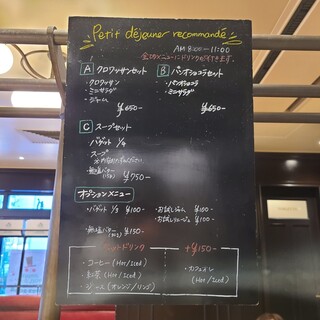 Petit déjeuner recommandé
AM 8:00〜11:00
全てのメニューにドリンクが付きます。
A クロワッサンセット
・クロワッサン
・ミニサラダ
・ジャム
¥650-
B パンオショコラセット
・パンオショコラ
・ミニサラダ
¥650-
C スープセット
バゲット 1/4
スープ
・無塩バター(15g) ¥750-
オプションメニュー
・バゲット 1/3 ¥100-
・無塩バター ¥150-
・お試しジャム ¥100-
¥100-
セットドリンク
・コーヒー (Hot/Iced)
・紅茶 (Hot/Iced)
・ジュース (オレンジ/リンゴ)
+¥150-
・カフェオレ
(Hot/Iced)